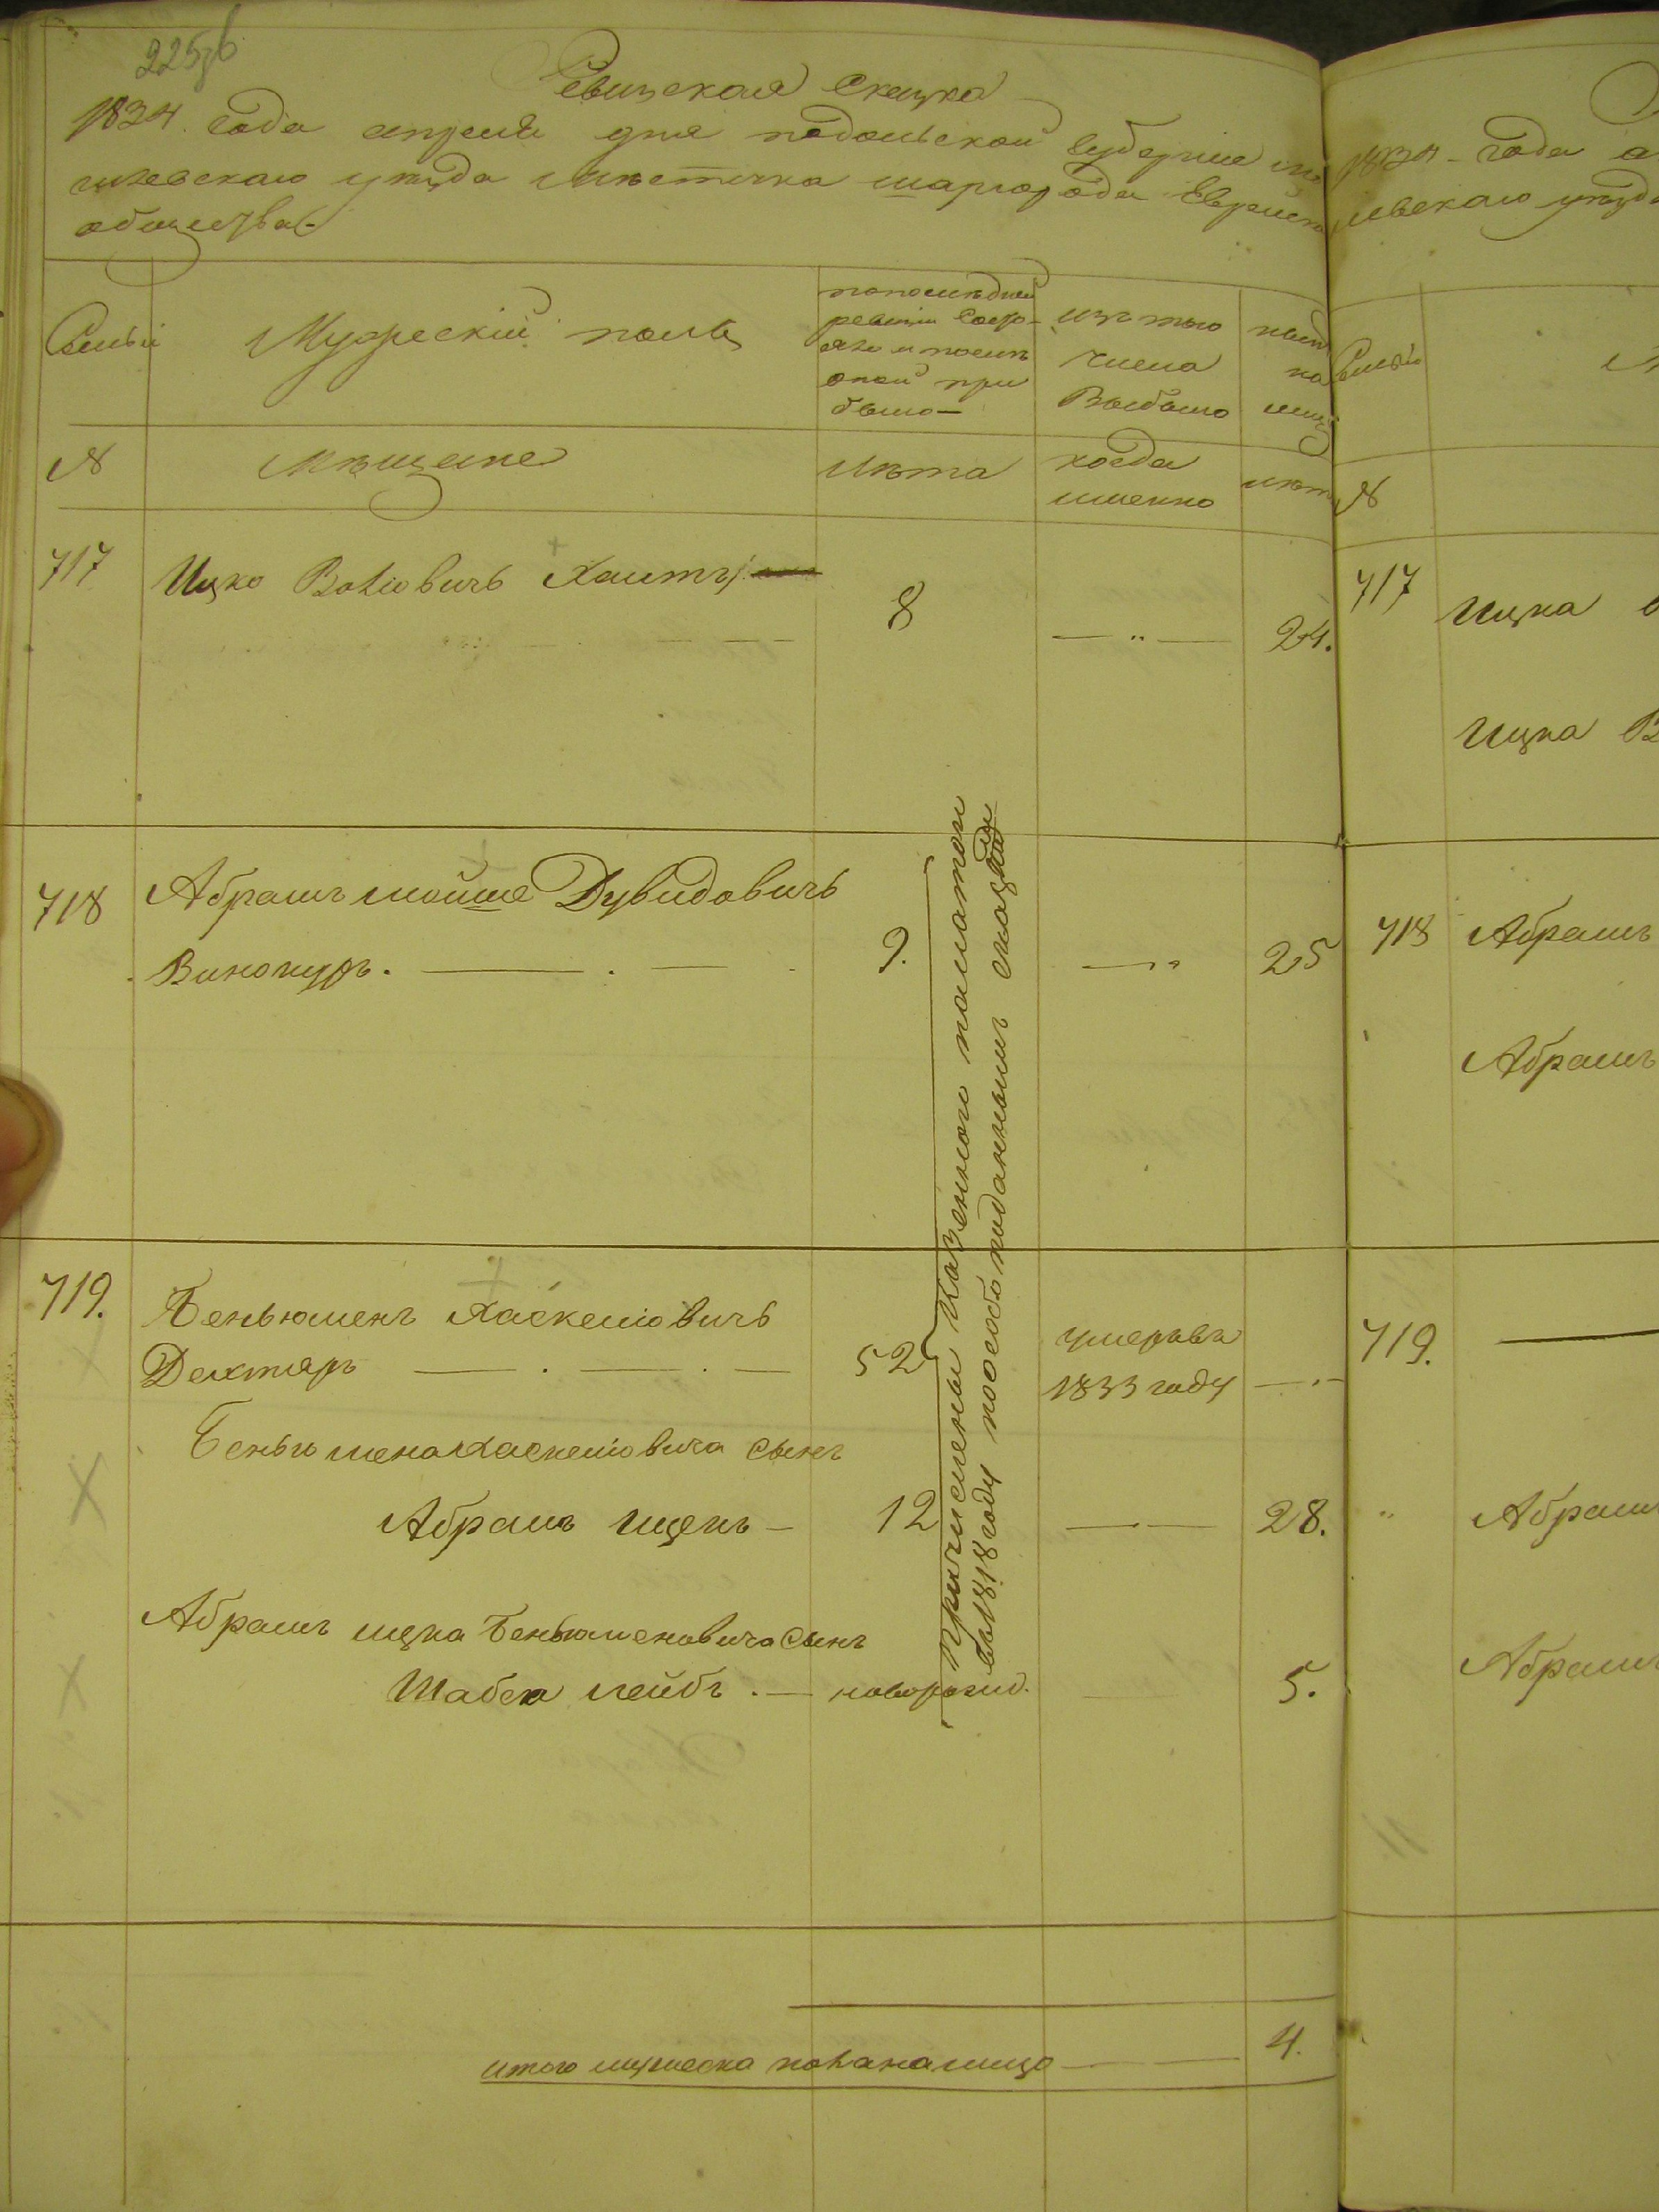 225об
Ревизская Сказка
1834. года апреля дня подольской губернии мо
гилевскаго уезда местечка шаргорода Еврейск
общества
Семьи
Мужеский полъ
по последней
ревизіи состо-
яло и после
оной при
было —
изъ того
числа
Выбыло
ныне
на
лицо
№
Мещане
лета
когда
именно
лет
717
Ицко Волковичъ Хаитъ
8
24.
718
Абрамъ мойше Дувидовичъ
Винокуръ.
9.
25
719.
Беньюменъ Хаскеліовичъ
Дехтяръ
52
умеръ въ
1833 году
Беньюмена Хаскеліовича сынъ
Абрамъ ицекъ —
12
28.
Абрамъ ицка Беньюменовича сынъ
Шабса лейбъ . —
наворожд.
5.
Причислены Казенной палатой
въ 1818 году по особо поданнымъ сказкам
итого мужеска пола на лицо
4.
1834 года а
левскаго уезда
Семьи
№
717
Ицка
Ицка В
718
Абрамъ
Абрамъ
719.
Абрам
Абрам